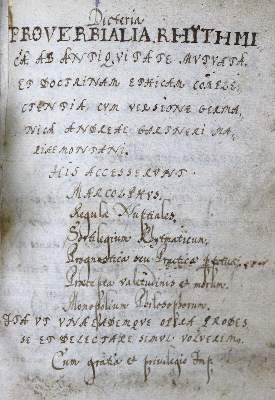 Dicteria
PROVERBIALIA RHYTHMI
CA AB ANTIQVITATE MVTVATA,
ET DOCTRINAM ETHICAM COMPLE,
CTENTIA, CVM VERSIONE GERMA,
NICA ANDREAE GARTNERI MA,
RIAEMONTANI.
HIS ACCESSERVNT.
MARCOLPHVS.
Regulæ Nuptiales.
Sortilegium Rhytmaticum.
Prognostica seu Practica
Præcepta valetudinis et morum.
Monopolium Philosophorum.
ITA VT VNA EADEMQVE OPERA PRODES
SE ET DELECTARE SIMVL VOLVERIMVS.
Cum gratia et privilegio Imp.